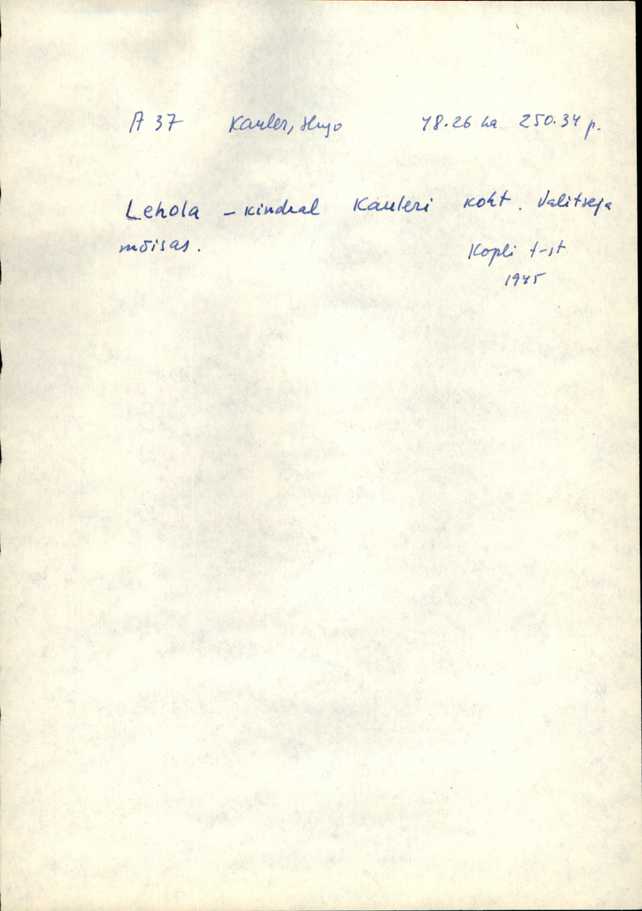 A 37 Kauler, Hugo 48.26 ha 250.34 p.
Lehola – kindral Kauleri koht. Valitseja
mõisas.
Kopli t-st
1975